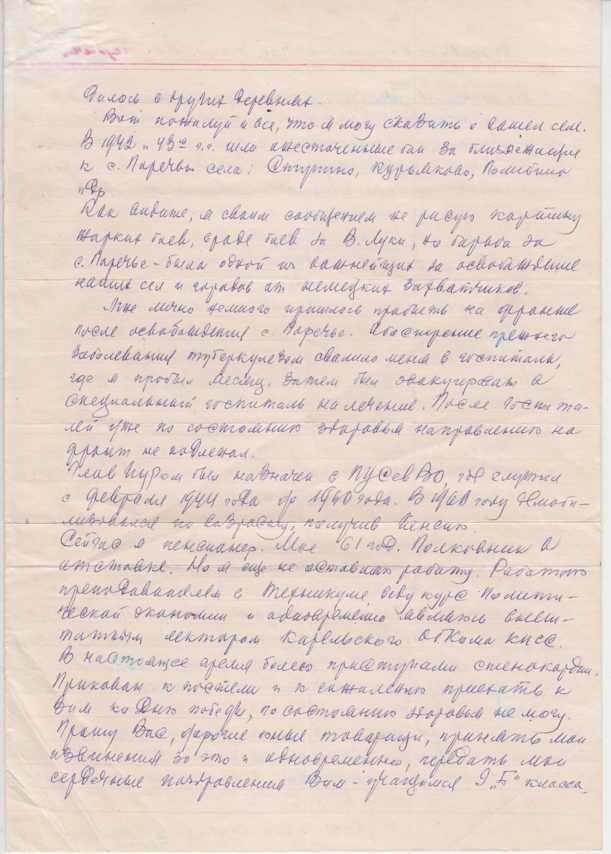 дилось в других деревнях.
Вот пожалуй и все, что я могу сказать о вашем селе.
В 1942 и 43 г.г. шли ожесточенные бои за ближайшие
к с. Поречье села:
и др
Как видите, я своим сообщением не рисую картину
жарких боев, вроде боев за В. Луки, но борьба за
с. Поречье - была одной из важнейших за освобождение
наших сел и городов от немецких захватчиков.
Мне лично немного пришлось пробыть на фронте
после освобождения с. Поречье. Обострение прежнего
заболевания туберкулезом свалило меня в госпиталь,
где я пробыл месяц. Затем был эвакуирован в
специальный госпиталь на лечение. После госпита-
лей уже по состоянию здоровья направлению на
фронт не подлежал.
ГлавПУРом был назначен в ПУСевВО, где служил
с февраля 1944 года до 1960 года. В 1960 году демоби-
лизовался по возрасту, получив пенсию.
Сейчас я пенсионер. Мне 61 год. Полковник в
отставке. Но я еще не оставляю работу. Работаю
преподавателем в техникуме веду курс полити-
ческой экономии и одновременно являюсь внеш-
татным лектором Карельского Обкома КПСС.
В настоящее время болею приступами стенокардии.
Прикован к постели и к сожалению приехать к
Вам ко дню победы, по состоянию здоровья не могу.
Прошу Вас, дорогие юные товарищи, принять мои
извинения за это и одновременно, передать мои
сердечные поздравления Вам - учащимся 9 „Б" класса